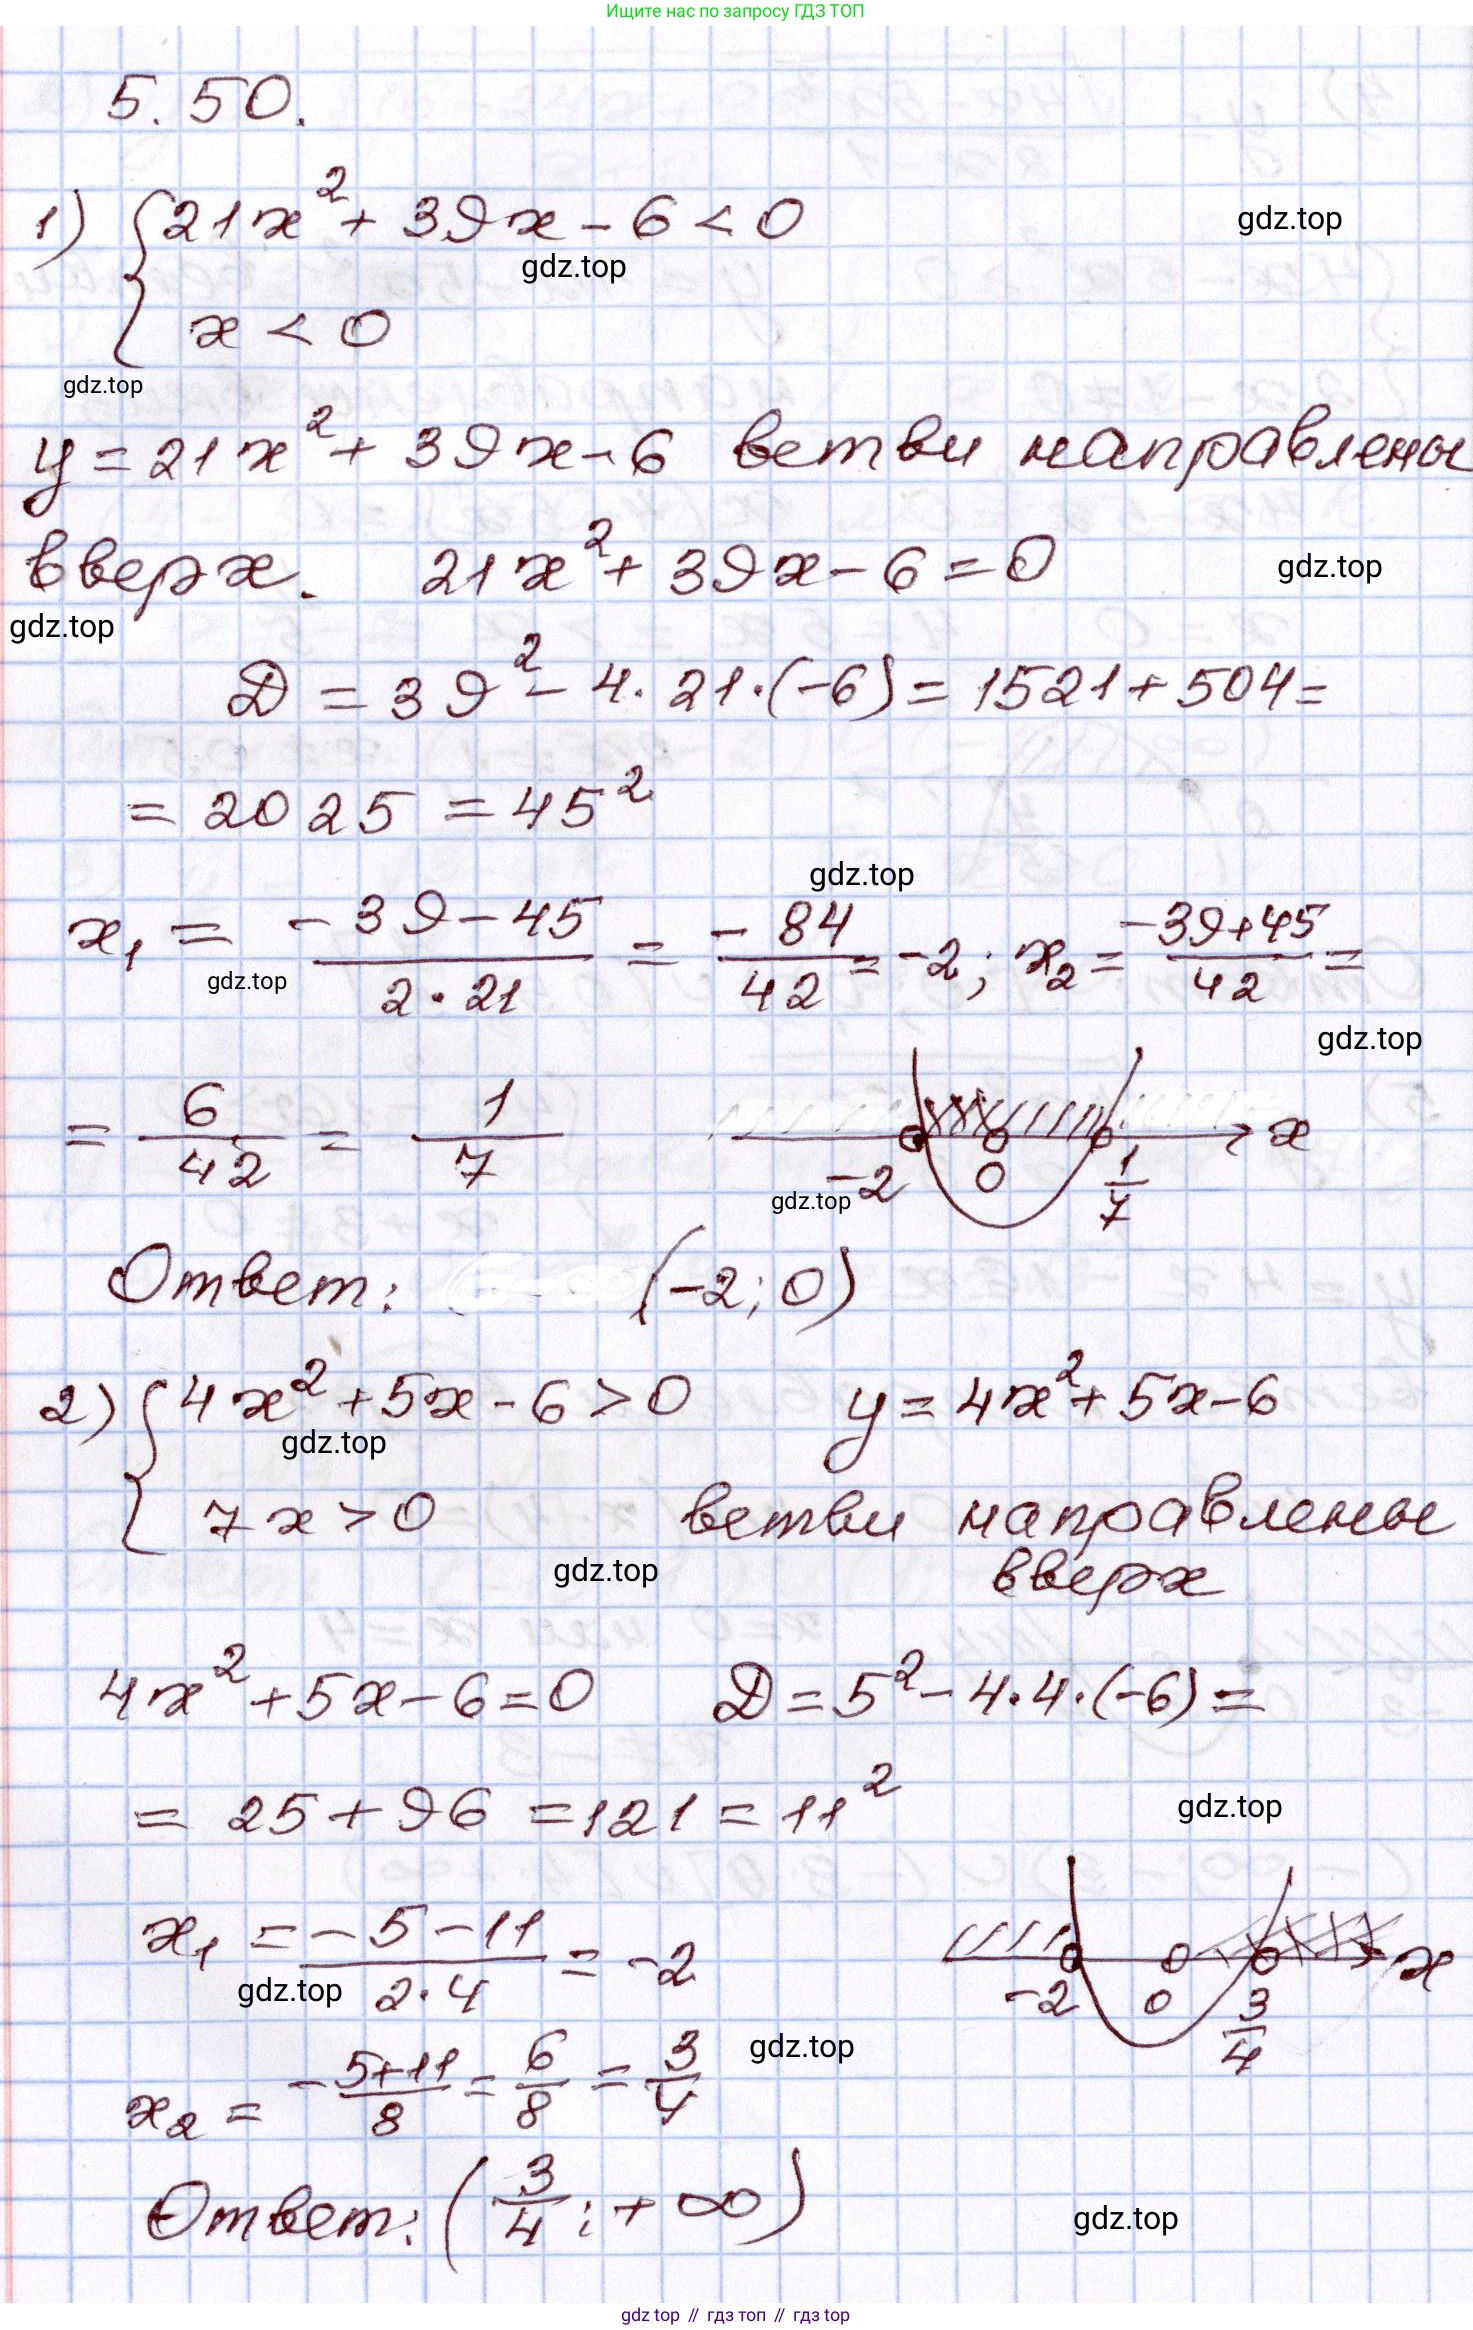 Ищите нас по запросу ГДЗ ТОП
5.50.
1) { 21x² + 39x - 6 < 0
gdz.top
gdz.top
x < 0
gdz.top
y = 21x² + 39x - 6 ветви направлены
вверх. 21x² + 39x - 6 = 0
gdz.top
gdz.top
D = 39² - 4·21·(-6) = 1521 + 504 =
= 2025 = 45²
gdz.top
x₁ = (-39-45)/(2·21) = -84/42 = -2; x₂ = (-39+45)/42 =
gdz.top
gdz.top
= 6/42 = 1/7
-2 0 1/7 x
gdz.top
Ответ: (-2; 0)
2) { 4x² + 5x - 6 > 0 y = 4x² + 5x - 6
gdz.top
7x > 0 ветви направлены
вверх
gdz.top
4x² + 5x - 6 = 0 D = 5² - 4·4·(-6) =
= 25 + 96 = 121 = 11²
gdz.top
x₁ = (-5-11)/(2·4) = -2
gdz.top
-2 0 3/4 x
gdz.top
x₂ = -5+11/8 = 6/8 = 3/4
Ответ: (3/4; +∞)
gdz.top
gdz top // гдз топ // гдз top